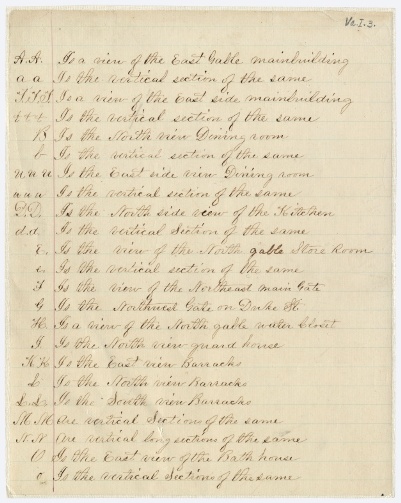 Va.I.3.
A.A. Is a view of the East Gable mainbuilding
a a Is the vertical section of the same
Is a view of the East side mainbuilding
Is the vertical section of the same
B Is the North view Dining room
b Is the vertical section of the same
Is the East side view Dining room
Is the vertical section of the same
D.D. Is the North side view of the Kittchen
d.d. Is the vertical Section of the same
E. Is the view of the North gable Store Room
e. Is the vertical section of the same
F Is the view of the Northeast main Gate
G Is the Northwest Gate on Duke St
H. Is a view of the North gable water Closet
I Is the North view guard house
K K Is the East view Barracks
L Is the North view Barracks
L.L. Is the South view Barracks
M M Are vertical Sections of the same
N.N Are vertical long sections of the same
O. Is the East view of the Bath house
Is the vertical Section of the same